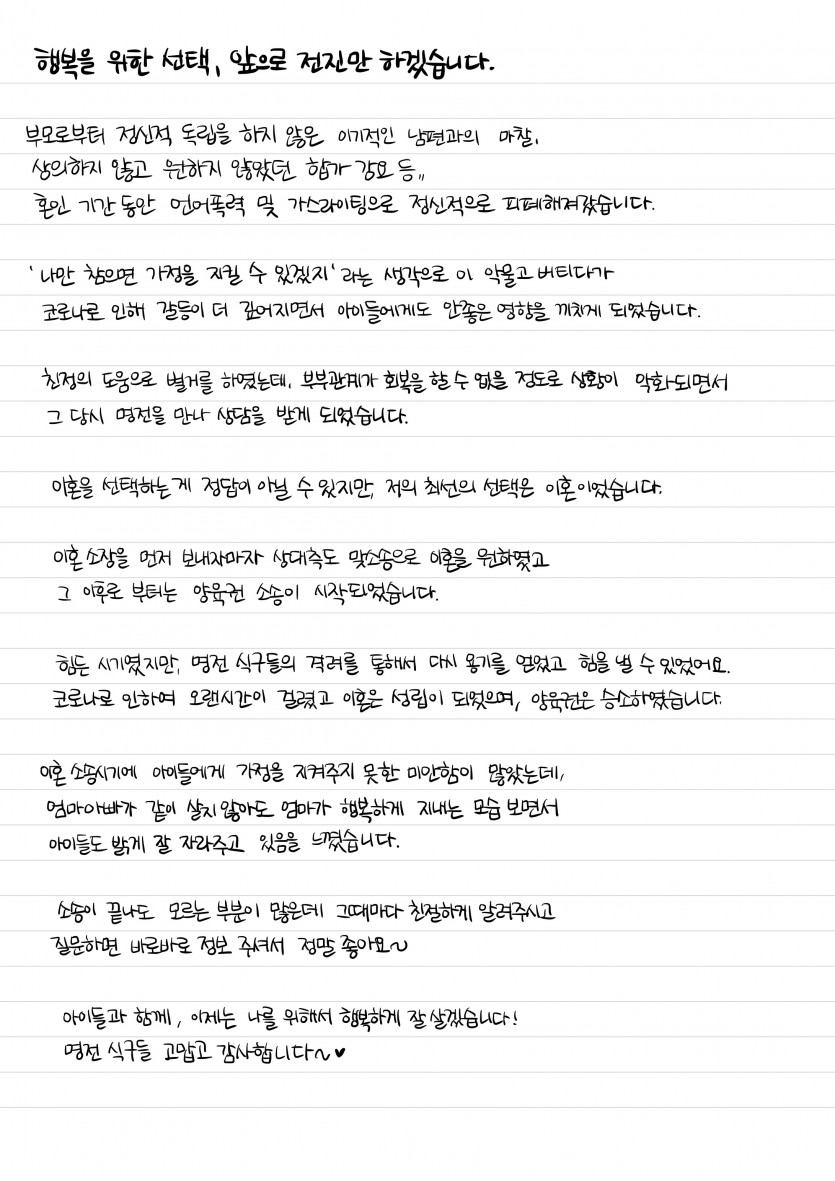 행복을 위한 선택, 앞으로 전진만 하겠습니다.
부모로부터 정신적 독립을 하지 않은 이기적인 남편과의 마찰,
상의하지 않고 원하지 않았던 합가 강요 등,,
혼인 기간 동안 언어폭력 및 가스라이팅으로 정신적으로 피폐해져갔습니다.
'나만 참으면 가정을 지킬 수 있겠지'라는 생각으로 이 악물고 버티다가
코로나로 인해 갈등이 더 깊어지면서 아이들에게도 안좋은 영향을 끼치게 되었습니다.
친정의 도움으로 별거를 하였는데, 부부관계가 회복을 할 수 없을 정도로 상황이 악화되면서
그 당시 명전을 만나 상담을 받게 되었습니다.
이혼을 선택하는게 정답이 아닐 수 있지만, 저의 최선의 선택은 이혼이었습니다.
이혼 소장을 먼저 보내자마자 상대측도 맞소송으로 이혼을 원하였고
그 이후로 부터는 양육권 소송이 시작되었습니다.
힘든 시기였지만, 명전 식구들의 격려를 통해서 다시 용기를 얻었고 힘을 낼 수 있었어요.
코로나로 인하여 오랜시간이 걸렸고 이혼은 성립이 되었으며, 양육권은 승소하였습니다.
이혼 소송시기에 아이들에게 가정을 지켜주지 못한 미안함이 많았는데,
엄마아빠가 같이 살지않아도 엄마가 행복하게 지내는 모습 보면서
아이들도 밝게 잘 자라주고 있음을 느꼈습니다.
소송이 끝나도 모르는 부분이 많은데 그때마다 친절하게 알려주시고
질문하면 바로바로 정보 주셔서 정말 좋아요~
아이들과 함께, 이제는 나를 위해서 행복하게 잘 살겠습니다!
명전 식구들 고맙고 감사합니다~♥